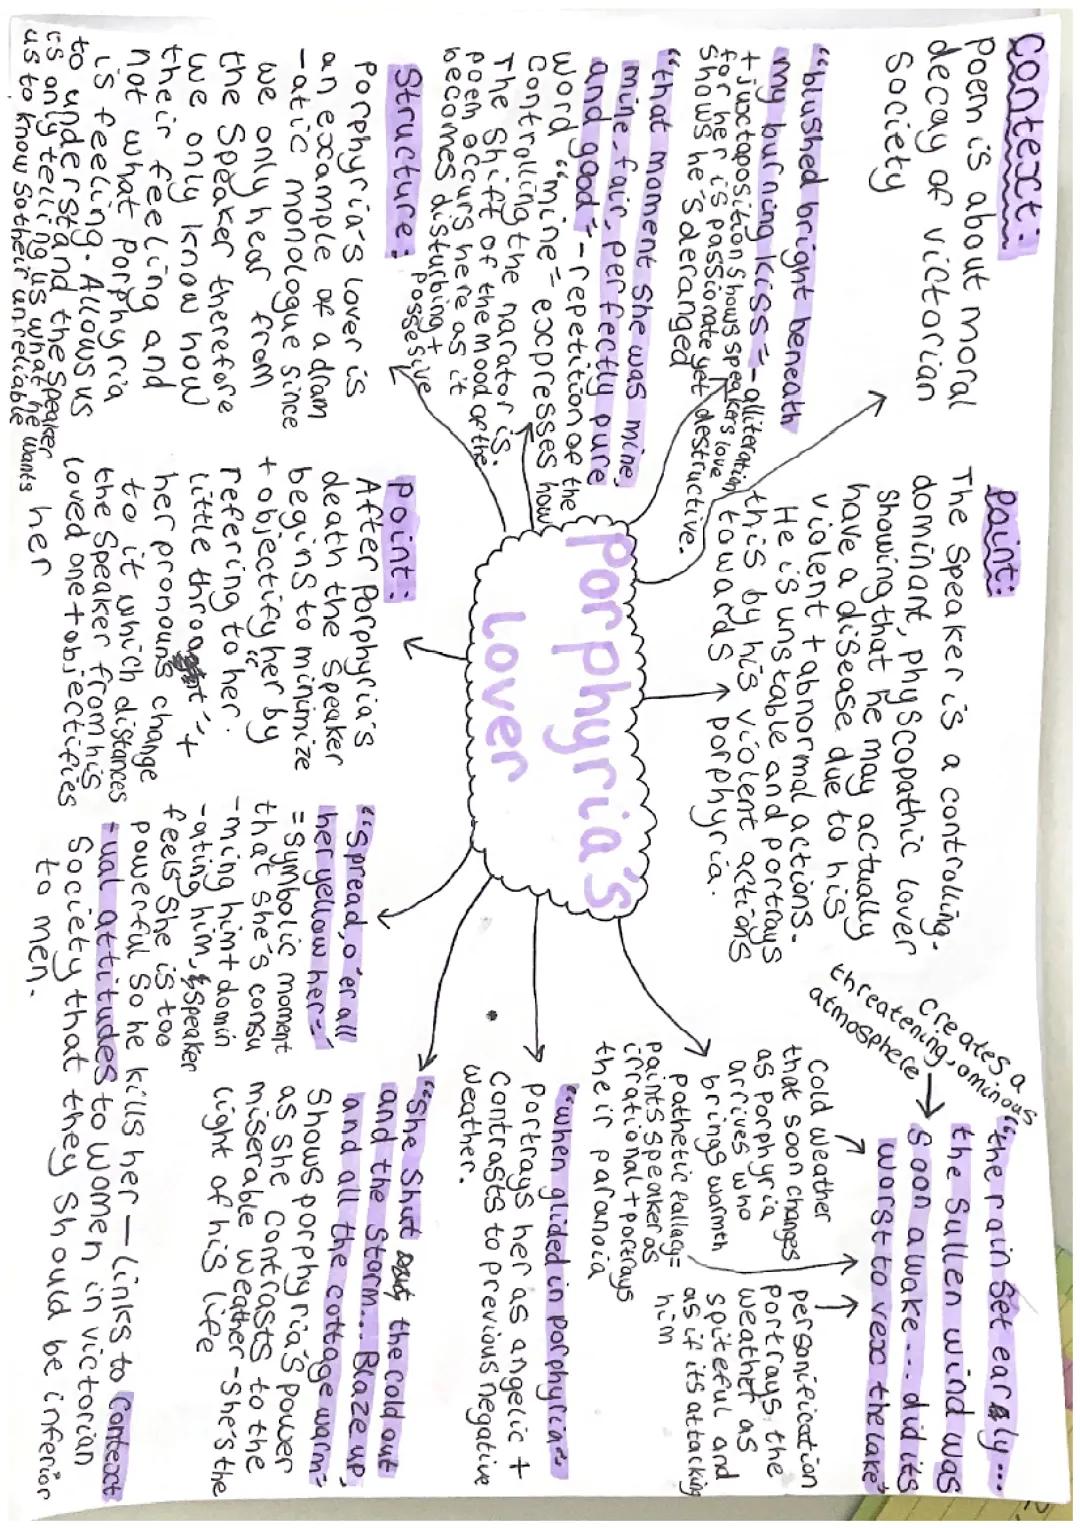 Context:
Poem is about moral
decay of victorian
Society
"blushed bright beneath
my burning kiss" - alliteration
+ juxtaposition shows speakers love
for her is passionate yet destructive.
Shows he's deranged
"that moment she was mine,
mine, fair, perfectly pure
and good" - repetition of the
word "mine" expresses how
controlling the narator is.
The shift of the mood of the
poem occurs here as it
becomes disturbing +
possesive
Structure:
Porphyria's lover is
an example of a dram
-atic monologue since
we only hear from
the speaker therefore
we only know how
their feeling and
not what porphyria
is feeling. Allows us
to understand the speaker
is only telling us what he wants
us to know so their unreliable
Porphyria's
lover
point:
The speaker is a controlling-
dominant, physcopathic lover
showing that he may actually
have a disease due to his
violent + abnormal actions.
He is unstable and portrays
this by his violent actions
towards porphyria.
point:
After Porphyria's
death the speaker
begins to minimize
+ objectify her by
refering to her.
"little throat" +
her pronouns change
to it which distances
the speaker from his
loved one + objectifies
her
creates a
threatening, ominous
atmosphere
"the rain set early...
the sullen wind was
soon awake... did its
worst to vex the lake"
cold weather
that soon changes
as porphyria
arrives who
brings warmth
pathetic fallacy=
paints speaker as
irrational + portrays
their paranoia
personification
portrays the
weather as
spiteful and
as if its attacking
him
"when glided in porphyria"
portrays her as angelic +
contrasts to previous negative
weather.
"She shut the cold out
and the storm... Blaze up,
and all the cottage warm"
Shows porphyria's power
as she contrasts to the
miserable weather - she's the
light of his life
"Spread, o'er all
her yellow her"
= symbolic moment
that she's consu
-ming him + domin
-ating him, & speaker
feels she is too
powerful so he kills her - links to context
-ual attitudes to women in victorian
society that they should be inferior
to men.